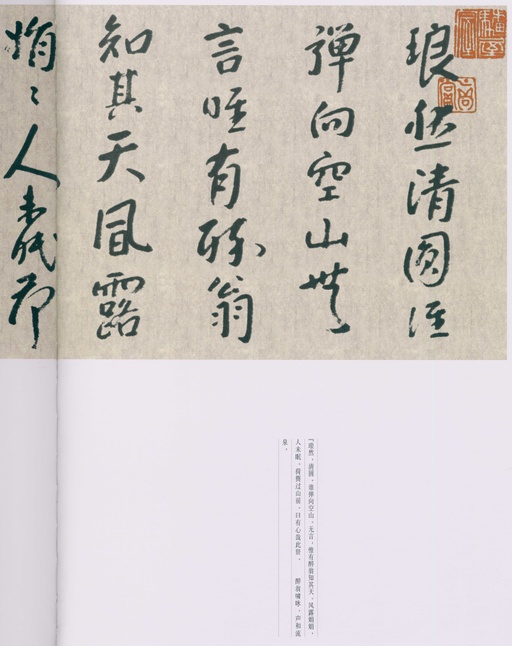 琅然清圓誰
彈向空山無
言唯有醉翁
知其天風露
娟〻人未眠荷
「琅然，清圆，谁弹向空山，无言，惟有醉翁知其天，风露娟娟，
人未眠，荷蒉过山前，曰有心哉此贤。 醉翁啸咏，声和流
泉，